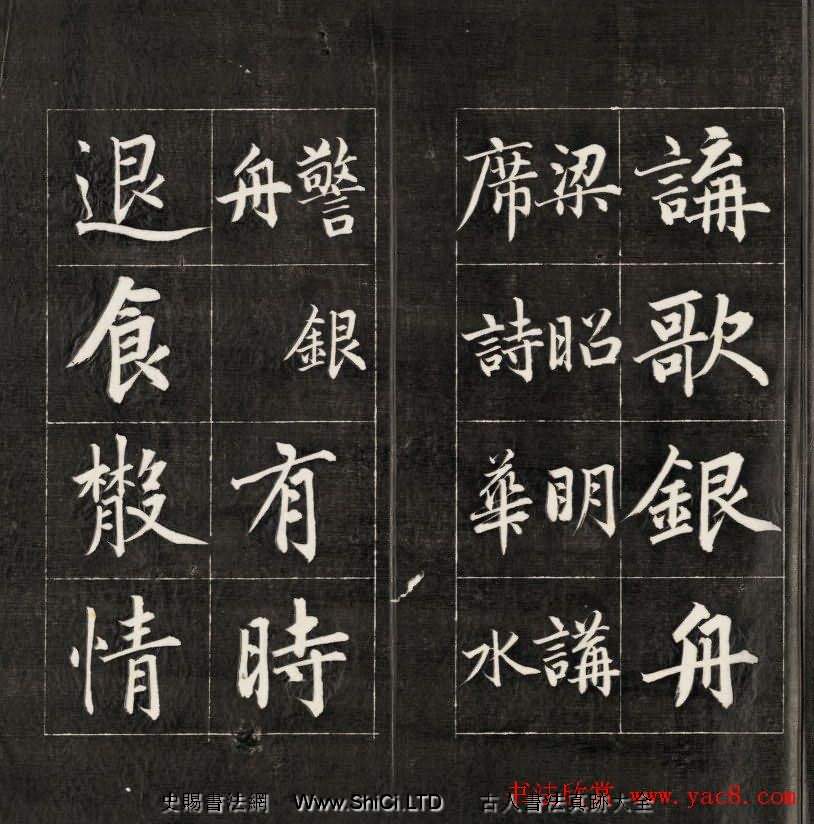 講歌銀舟
梁昭明講
席詩華水
警銀
舟
有時
退食散情
书法欣赏 www.yac8.com
史賜書法網 Www.ShiCi.LTD 古人書法真跡大全